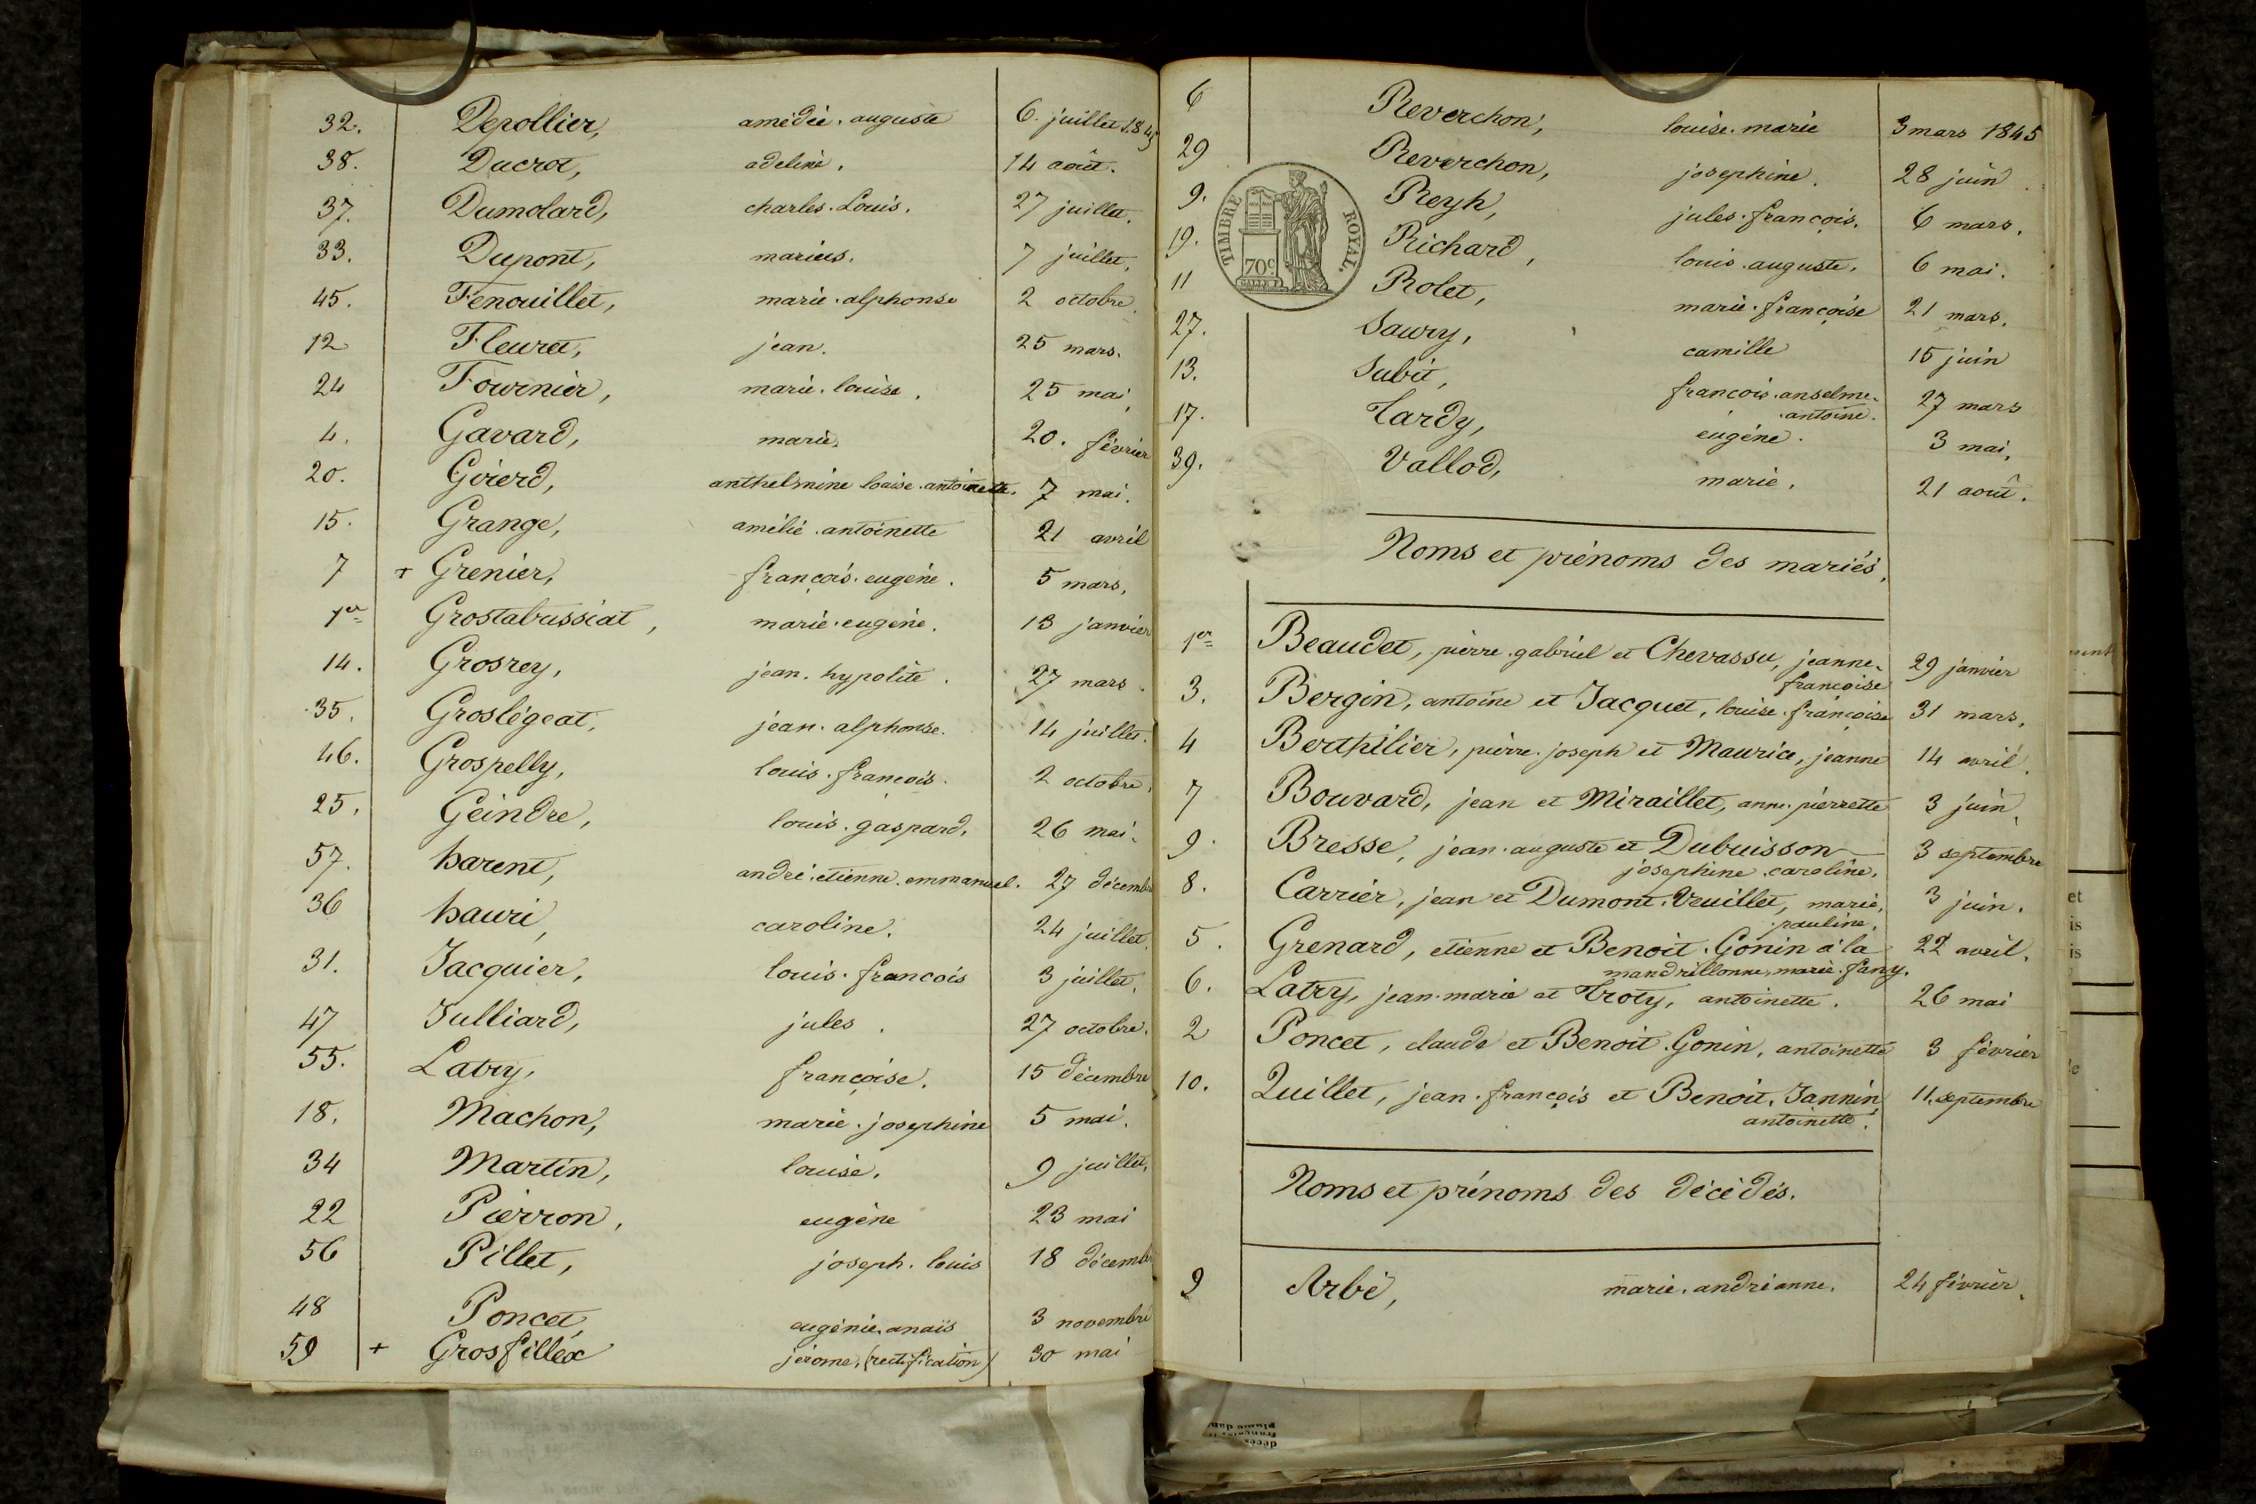 32. Depollier, amédée. auguste 6. juillet 1845
38. Ducrot, adeline. 14 août.
37. Dumolard, charles. Louis. 27 juillet.
33. Dupont, marius. 7 juillet.
45. Fenouillet, marie. alphonse 2 octobre.
12 Fleuret, jean. 25 mars.
24 Fournier, marie. louise. 25 mai
4. Gavard, marie. 20. février
20. Goierd, anthelmine louise. antoinette. 7 mai.
15. Grange, amélie. antoinette 21 avril
7 + Grenier, françois. eugène. 5 mars,
1er Grostabussiat, marie. eugène. 13 janvier
14. Grosrey, jean. hypolite. 27 mars.
35. Groslégeat, jean. alphonse. 14 juillet.
46. Grospelly, louis. françois. 2 octobre.
25. Geindre, louis. gaspard. 26 mai.
57. harent, andré. etienne. emmanuel. 27 décembre
36 hauri, caroline. 24 juillet.
31. Jacquier, louis. francois 3 juillet.
47 Julliard, jules. 27 octobre.
55. Latry, françoise. 15 décembre
18. Machon, marie. josephine 5 mai.
34 Martin, louise. 9 juillet.
22 Pierron, eugène 23 mai
56 Pillet, joseph. louis 18 décembre
48 Poncet, eugénie. anaïs 3 novembre
59 + Grosfilléx jerome, (rectification) 30 mai
6 Reverchon, louise. marie 3 mars 1845
29 Reverchon, josephine. 28 juin.
9. Reyh, jules. françois. 6 mars.
19. Richard, louis. auguste. 6 mai.
11 Rolet, marie. françoise 21 mars.
27. Saury, camille 15 juin
13. Subit, francois. anselme. 27 mars
antoine.
17. Tardy, eugène. 3 mai.
39. Vallod, marie. 21 août.
TIMBRE ROYAL.
70c
Noms et prénoms des mariés.
1er Beaudet, pierre. gabriel et Chevassu, jeanne. 29 janvier
françoise
3. Bergin, antoine et Jacquet, louise. françoise 31 mars.
4 Berthilier, pierre. joseph et Maurice, jeanne 14 avril.
7 Bouvard, jean et Miraillet, anne. pierrette 3 juin.
9. Bresse, jean. auguste et Dubuisson 3 septembre
josephine. caroline.
8. Carrier, jean et Dumont. Vuillet, marie. 3 juin.
pauline.
5. Grenard, etienne et Benoit. Gonin à la 22 avril.
mandrillonne, marie. fany.
6. Latry, jean. marie et Troty, antoinette. 26 mai
2 Poncet, claude et Benoit. Gonin, antoinette 3 février
10. Quillet, jean. françois et Benoit. Jannin 11. septembre
antoinette.
Noms et prénoms des décédés.
2 Arbé, marie. andréanne. 24 février.